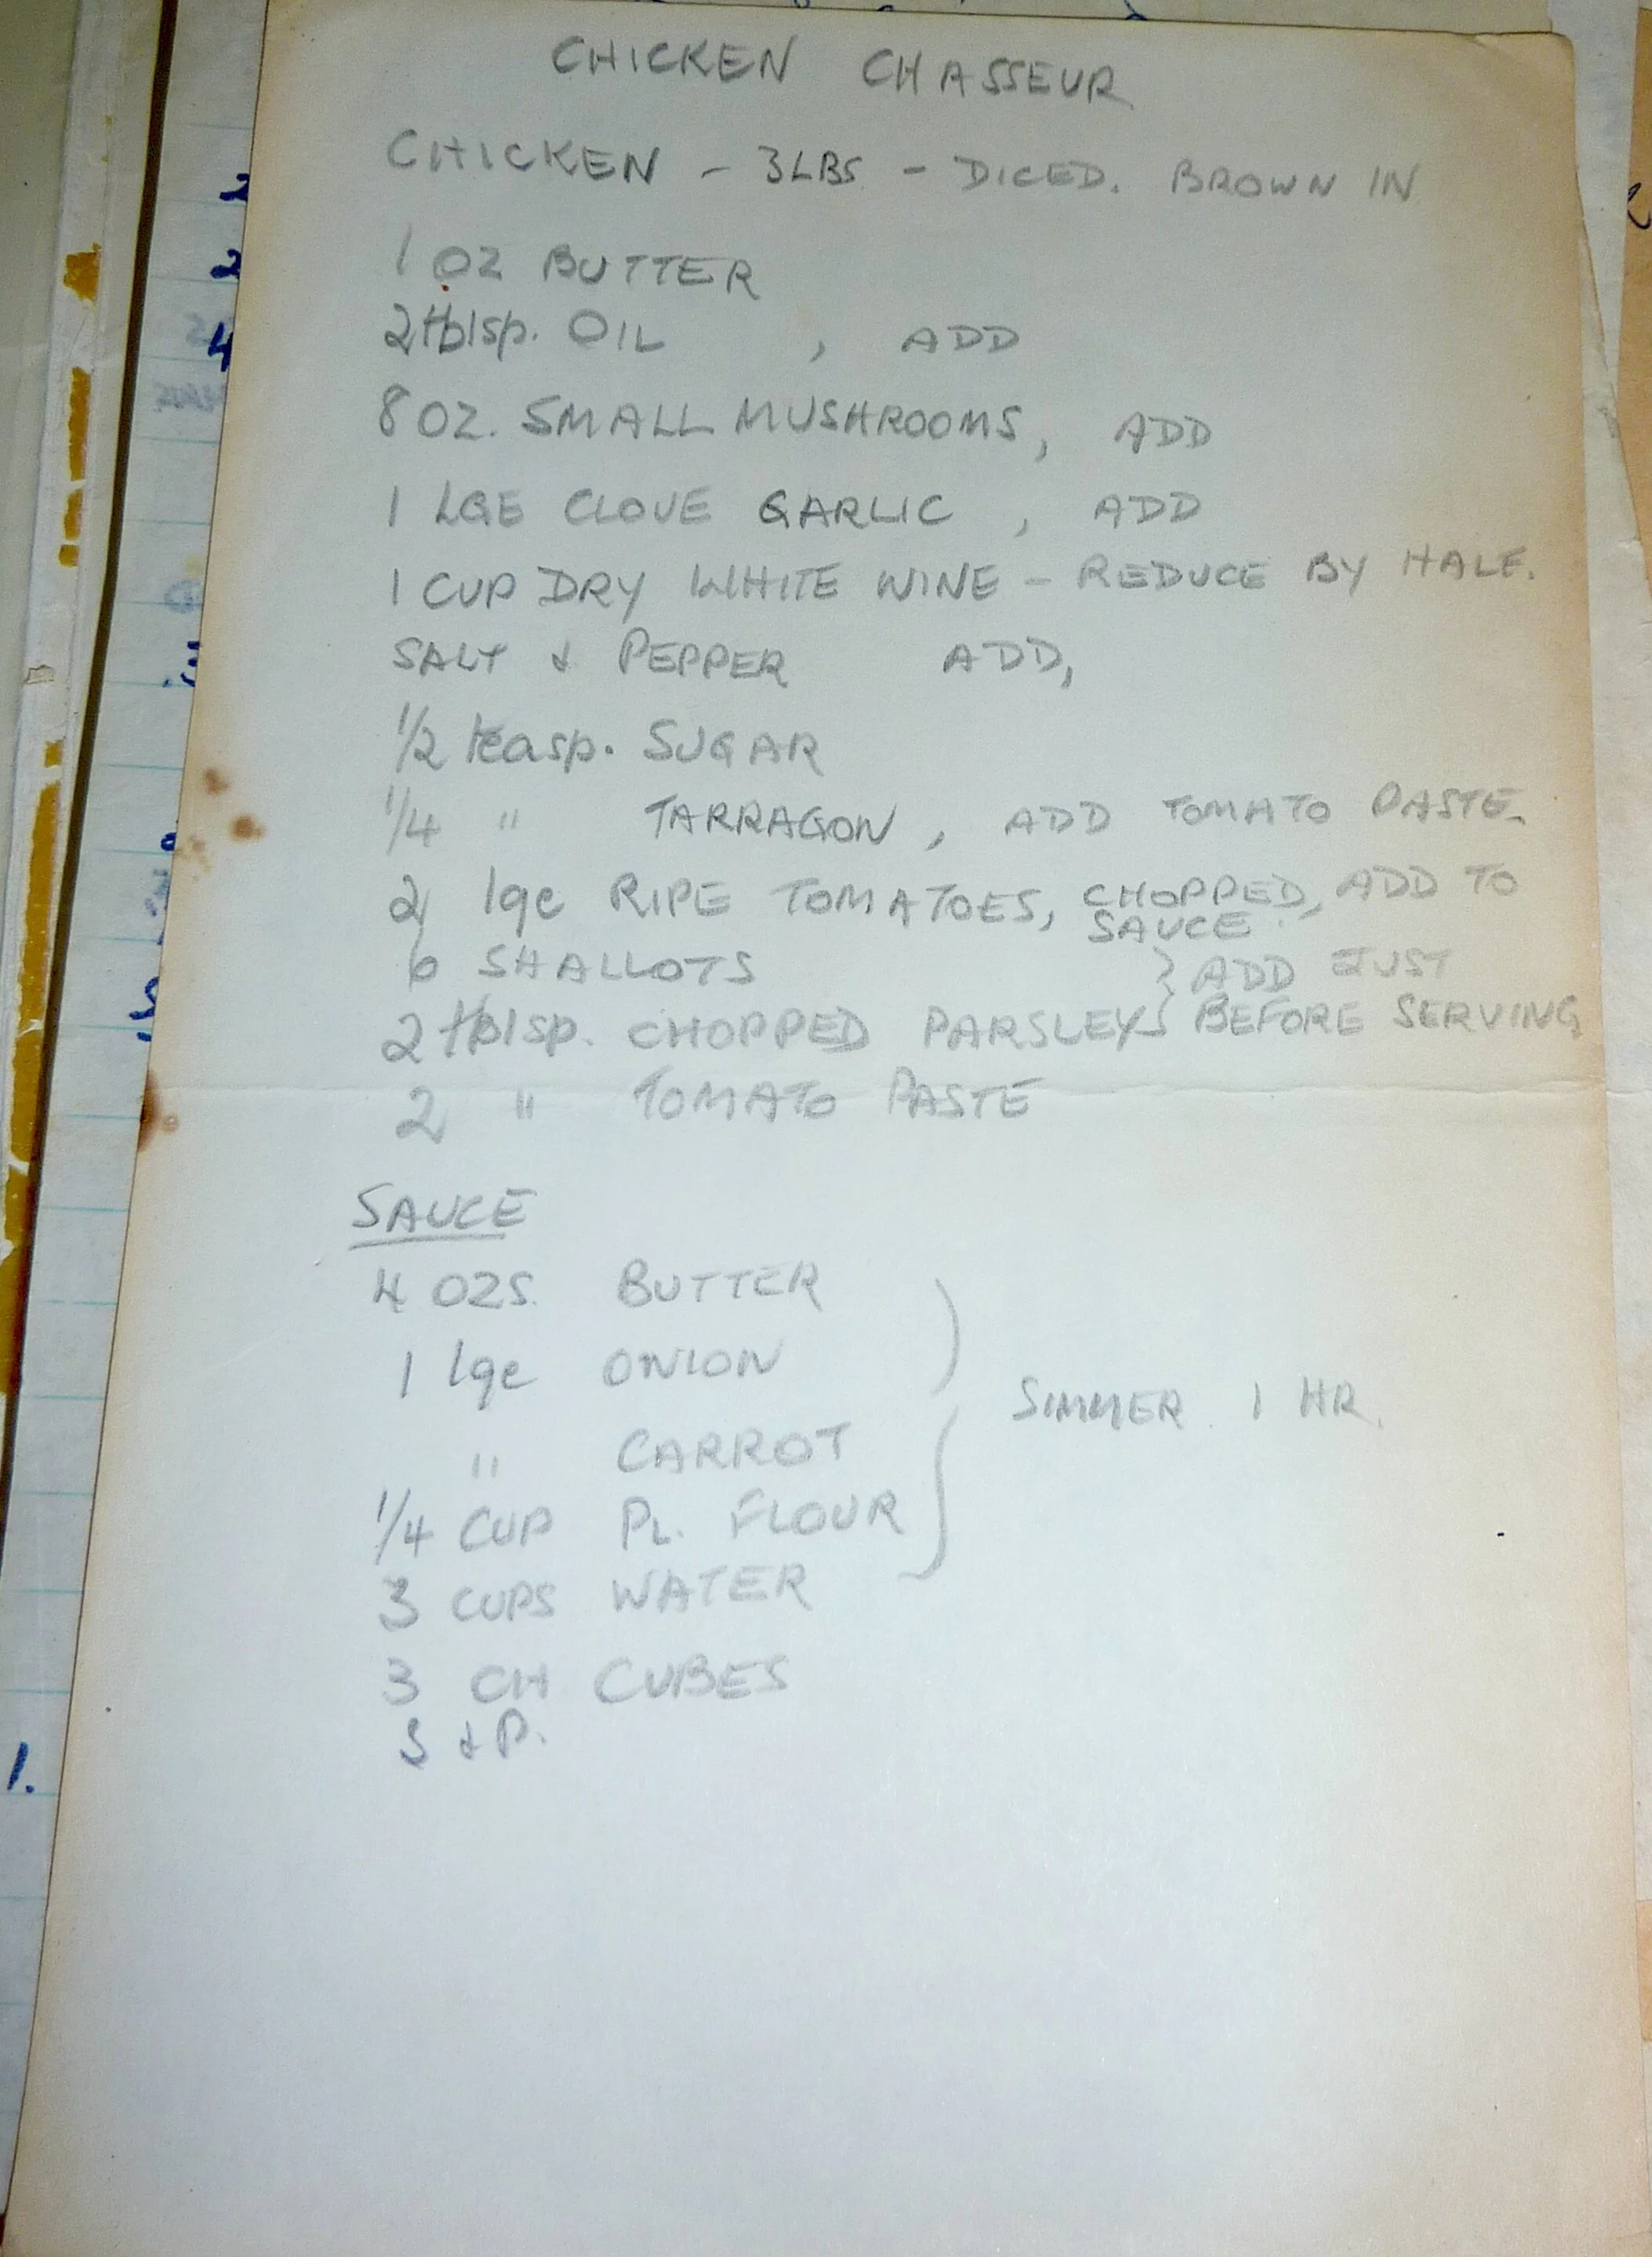 CHICKEN CHASSEUR
CHICKEN - 3LBS - DICED. BROWN IN
1 OZ BUTTER
2 tblsp. OIL , ADD
8 OZ. SMALL MUSHROOMS, ADD
1 LGE CLOVE GARLIC , ADD
1 CUP DRY WHITE WINE - REDUCE BY HALF.
SALT & PEPPER ADD,
1/2 teasp. SUGAR
1/4 " TARRAGON, ADD TOMATO PASTE.
2 lge RIPE TOMATOES, CHOPPED, ADD TO
SAUCE.
6 SHALLOTS } ADD JUST
2 tblsp. CHOPPED PARSLEY } BEFORE SERVING
2 " TOMATO PASTE
SAUCE
4 OZS. BUTTER
1 lge ONION
SIMMER 1 HR.
" CARROT
1/4 CUP PL. FLOUR
3 CUPS WATER
3 CH CUBES
S & P.
1.